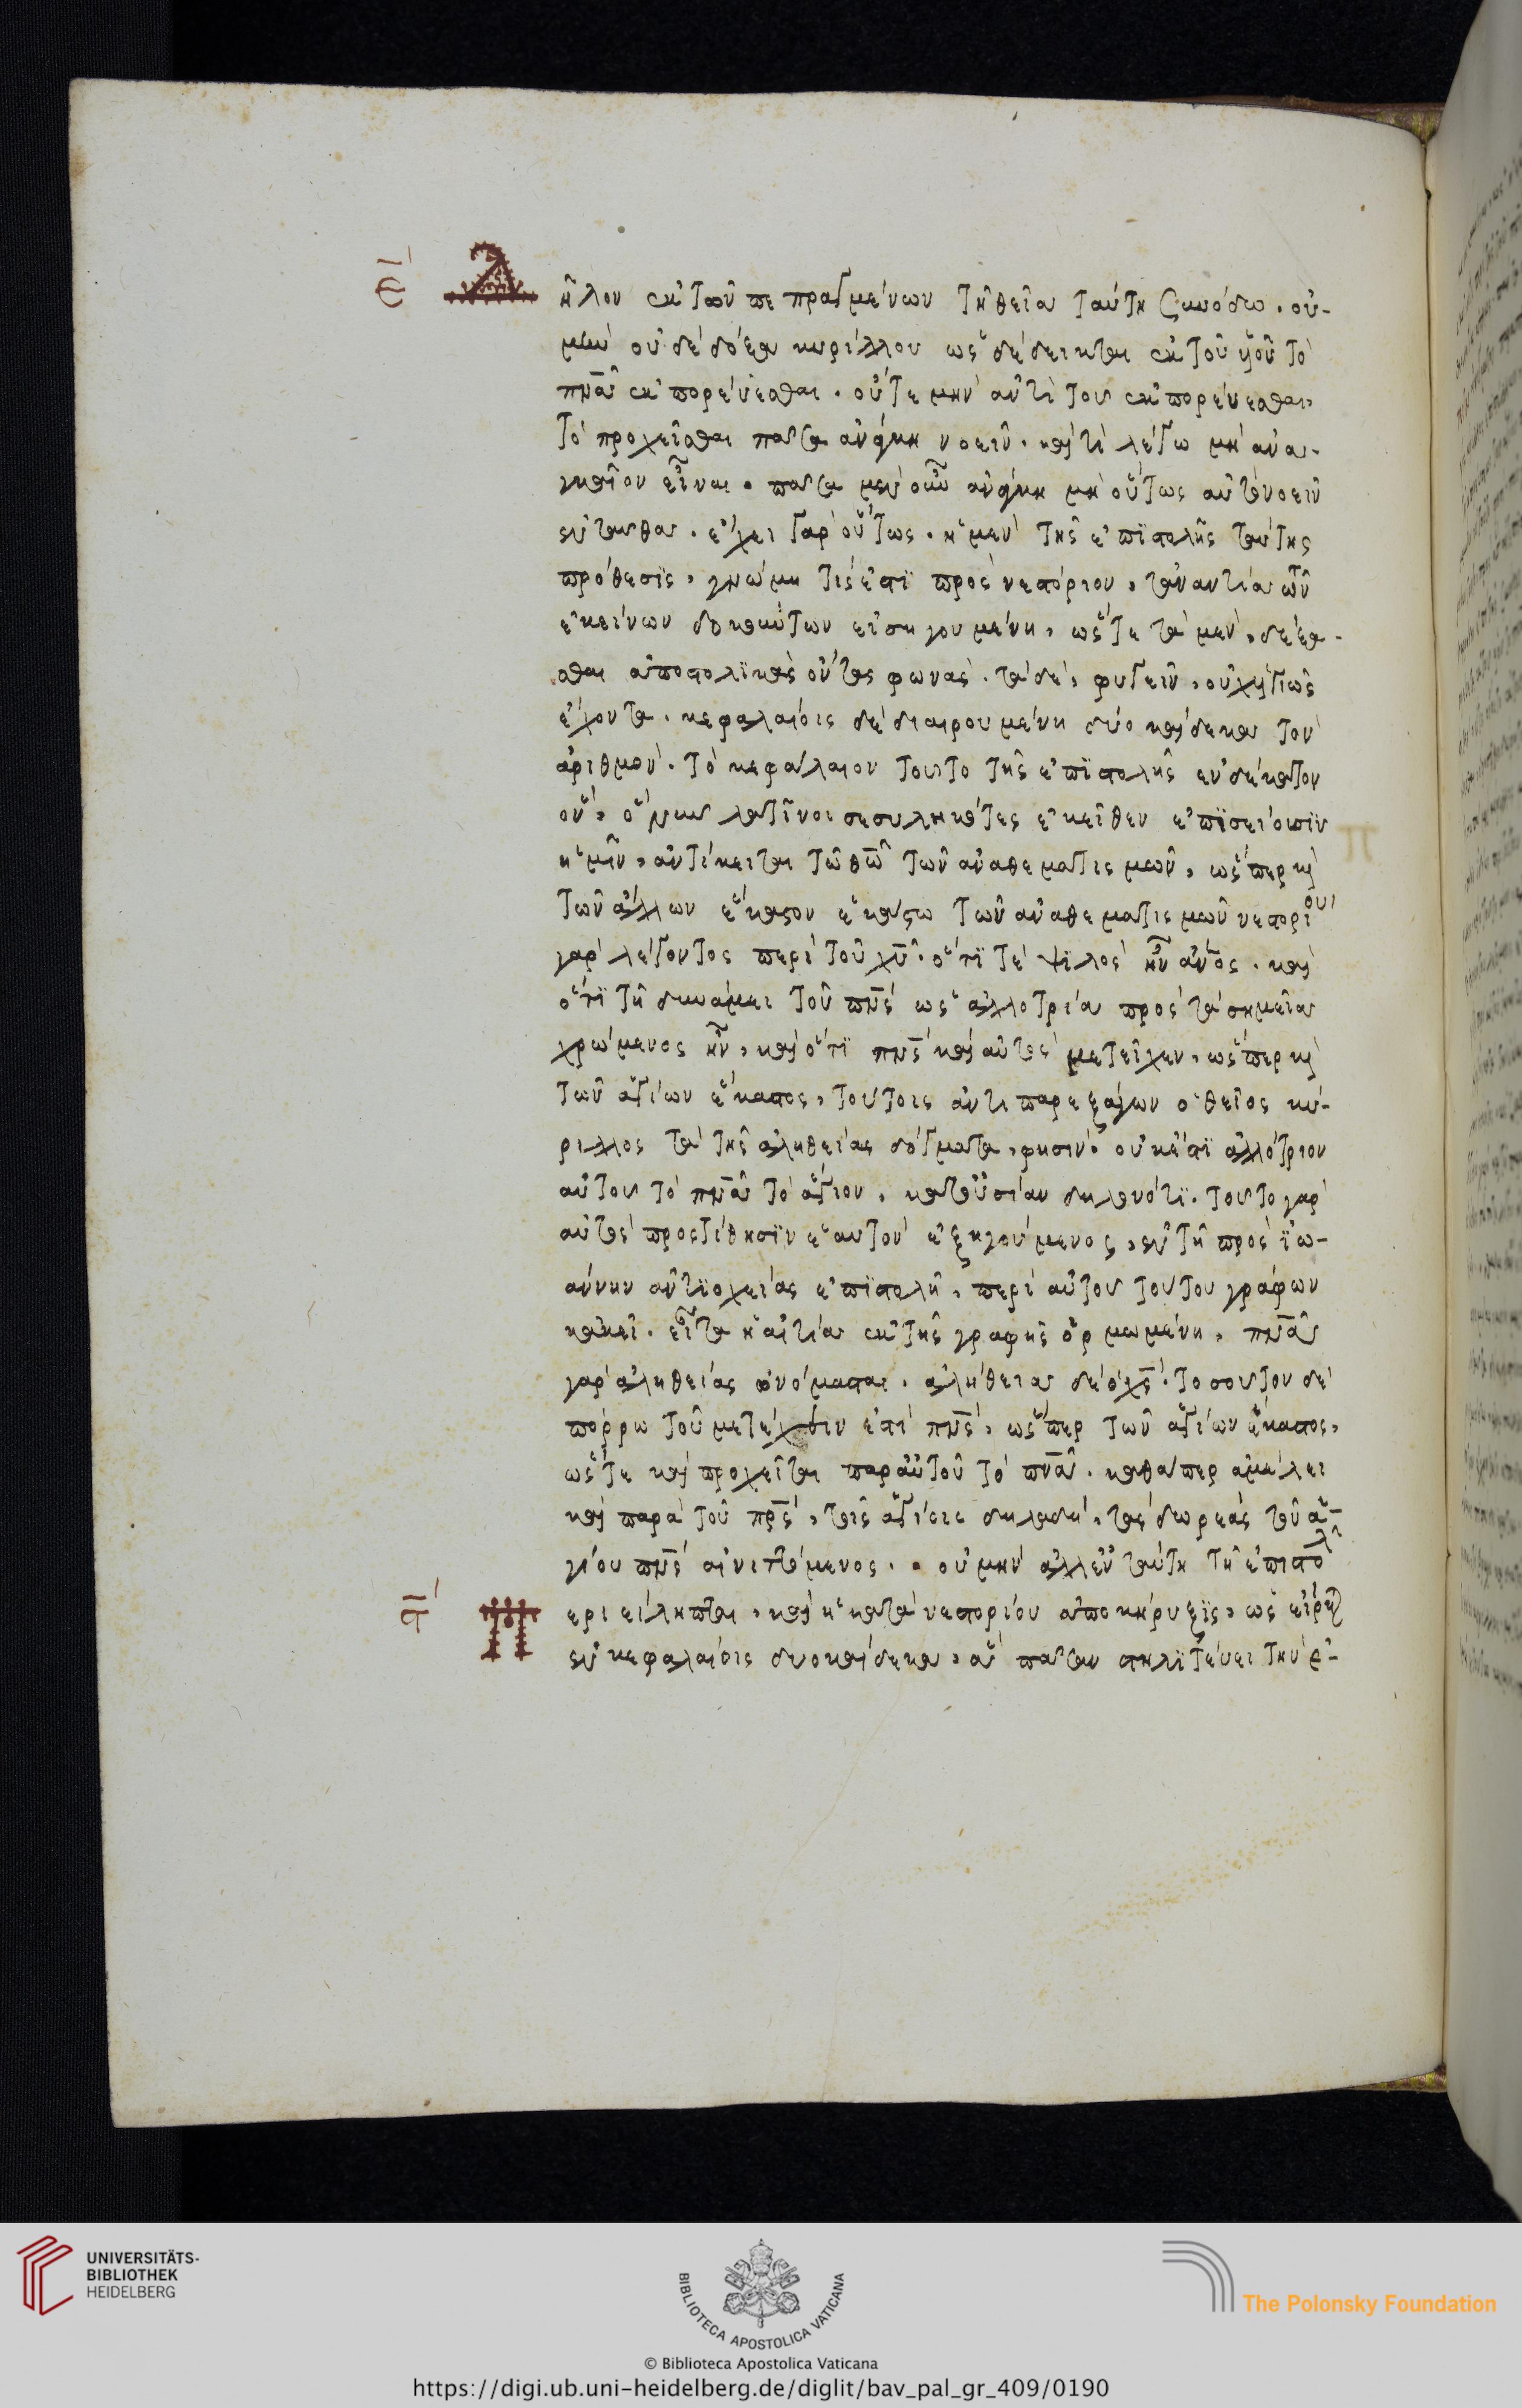 ε΄ Δῆλον ἐκ τῶν πεπραγμένων τῇ θεία ταύτη συνόδω. οὐ-
μὲν οὐδὲ δόξα κυρίλλου ὡς δέδεικται ἐκ τοῦ υἱοῦ τὸ
πνᾶ ἐκπορεύεσθαι. οὔτε μὴν ἀντὶ τοῦ ἐκπορεύεσθαι,
τὸ προχεῖσθαι πᾶσα ἀνάγκη νοεῖν. καὶ τί λέγω μὴ ἀνα-
γκαῖον εἶναι. πᾶσα μὲν οὖν ἀνάγκη μὴ οὕτως αὐτὸ νοεῖν
ἐνταῦθα. ἔχει γὰρ οὕτως. ἡ μὲν τῆς ἐπιστολῆς ταύτης
πρόθεσις, γνώμη τίς ἐστι πρὸς νεστόριον, τἀναντία ὧν
ἐκείνων δοκούντων εἰσηγουμένη, ὥστε τὰ μὲν, δέξα-
σθαι ἀποστολικὰς οὔσας φωνάς. τὰ δὲ, φυγεῖν, οὐχ ὑγιῶς
ἔχοντα. κεφαλαίοις δὲ διαιρουμένη δύο καὶ δεκα τὸν
ἀριθμόν. τὸ κεφάλαιον τοῦτο τῆς ἐπιστολῆς ἐνδέκατον
ὂν, ὅπερ λατῖνοι σεσυληκότες ἐκεῖθεν ἐπισείουσιν
ἡμῖν, ἀντίκειται τῶ θω τῶν ἀναθεματισμῶν, ὥσπερ καὶ
τῶν ἄλλων ἕκαστον ἑκάστω τῶν ἀναθεματισμῶν νεστορίου
γὰρ λέγοντος περὶ τοῦ χυ. ὅτι τὲ ψιλὸς ἦν ἄνος. καὶ
ὅτι τῇ δυνάμει τοῦ πνς ὡς ἀλλοτρία πρὸς τὰ σημεῖα
χρώμενος ἦν, καὶ ὅτι πνς καὶ αὐτὸς μετεῖχεν, ὥσπερ καὶ
τῶν ἁγίων ἕκαστος, τούτοις ἀντιπαρεξάγων ὁ θεῖος κύ-
ριλλος τὰ τῆς ἀληθείας δόγματα, φησίν. οὐκ ἔστι ἀλλότριον
αὐτοῦ τὸ πνᾶ τὸ ἅγιον, κατ οὐσίαν δηλονότι. τοῦτο γὰρ
αὐτὸς προστίθησιν ἑαυτὸν ἐξηγούμενος, ἐν τῇ πρὸς ἰω-
άννην ἀντιοχείας ἐπιστολῇ, περὶ αὐτοῦ τούτου γράφων
κἀκεῖ. εἶτα ἡ αἰτία ἐκ τῆς γραφῆς ὁρμωμένη, πνᾶ
γὰρ ἀληθείας ὠνόμασται. ἀλήθεια δὲ ὁ χς. τοσοῦτον δὲ
πόρρω τοῦ μετέχειν ἐστὶ πνς, ὥσπερ τῶν ἁγίων ἕκαστος,
ὥστε καὶ προχεῖται παρ αὐτοῦ τὸ πνᾶ. καθάπερ ἀμέλει
καὶ παρὰ τοῦ πρς, τοῖς ἁγίοις δηλαδὴ, τὰς δωρεὰς τοῦ ἁ-
γίου πνς αἰνιττόμενος. οὐ μὴν ἀλλ ἐν ταύτη τῇ ἐπιστολῇ
ς΄ Περιείληπται, καὶ ἡ κατὰ νεστορίου ἀποκήρυξις, ὡς εἴρηται
ἐν κεφαλαίοις δυοκαίδεκα, ἃ πᾶσαν στηλιτεύει τὴν ἐ-
UNIVERSITÄTS-
BIBLIOTHEK
HEIDELBERG
BIBLIOTECA APOSTOLICA VATICANA
The Polonsky Foundation
© Biblioteca Apostolica Vaticana
https://digi.ub.uni-heidelberg.de/diglit/bav_pal_gr_409/0190